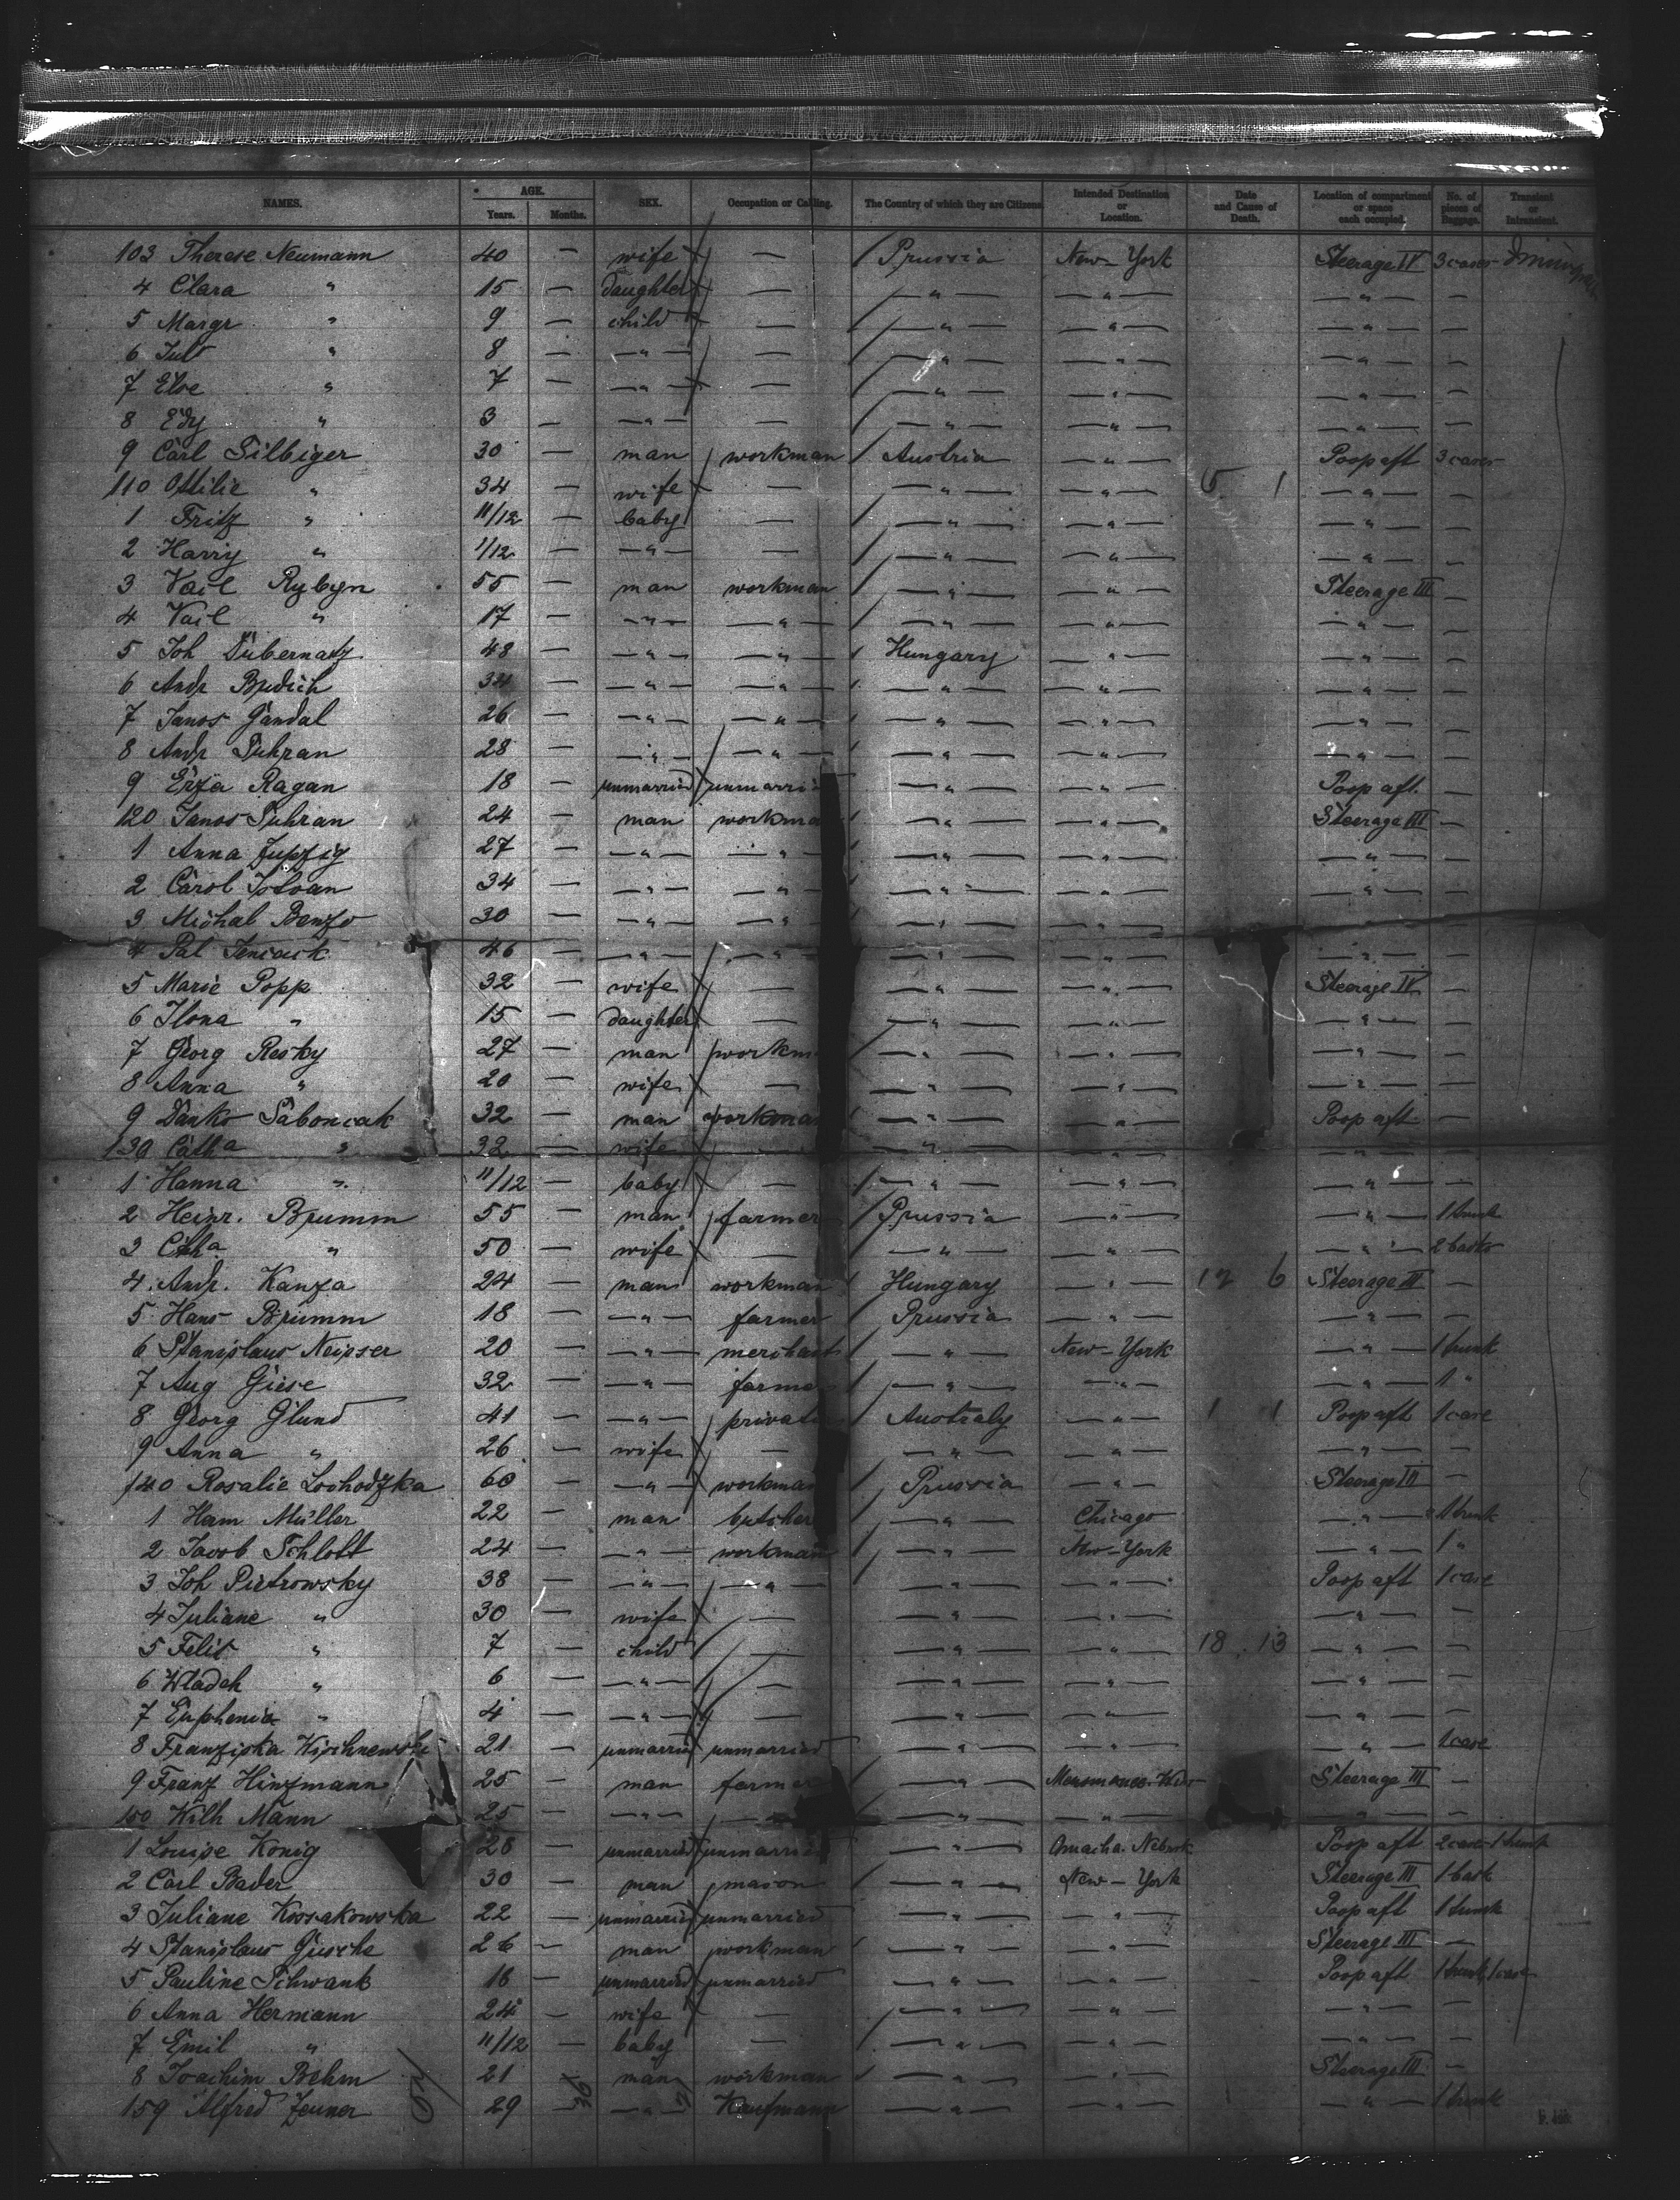 NAMES. AGE. Years. Months. SEX. Occupation or Calling. The Country of which they are Citizens. Intended Destination or Location. Date and Cause of Death. Location of compartment or space each occupied. No. of pieces of Baggage. Transient or Intransient.
103 Therese Neumann 40 — wife — Prussia New-York Steerage IV 3 cases
4 Clara " 15 — daughter — —"— —"— —"— —
5 Margr " 9 — child — —"— —"— —"— —
6 " 8 — —"— — —"— —"— —"— —
7 Else " 7 — —"— — —"— —"— —"— —
8 Edy " 3 — —"— — —"— —"— —"— —
9 Carl Silbiger 30 — man workman Austria —"— Poop aft 3 cases
110 Ottilie " 34 — wife — —"— —"— 5 1 —"— —
1 Fritz " 11/12 — baby — —"— —"— —"— —
2 Harry " 1/12 — —"— — —"— —"— —"— —
3 Vail Rybyn 55 — man workman —"— —"— Steerage III —
4 Vail " 17 — —"— —"— —"— —"— —"— —
5 Joh Dubernatz 48 — —"— —"— Hungary —"— —"— —
6 Andr 34 — —"— —"— —"— —"— —"— —
7 Janos Gandal 26 — —"— —"— —"— —"— —"— —
8 Andr Suhran 28 — —"— —"— —"— —"— —"— —
9 Erza Ragan 18 — unmarried unmarried —"— —"— Poop aft. —
120 Janos Suhran 24 — man workman —"— —"— Steerage III —
1 Anna 27 — —"— —"— —"— —"— —"— —
2 Carol Istvan 34 — —"— —"— —"— —"— —"— —
3 Michal Benzo 30 — —"— —"— —"— —"— —"— —
4 Pal 46 — —"— —"— —"— —"— —"— —
5 Marie Popp 32 — wife — —"— —"— Steerage IV —
6 Ilona " 15 — daughter — —"— —"— —"— —
7 Georg Resky 27 — man workm —"— —"— —"— —
8 Anna " 20 — wife — —"— —"— —"— —
9 Danko Saboncak 32 — man workman —"— —"— Poop aft —
130 Catha " 32 — wife — —"— —"— —"— —
1 Hanna " 11/12 — baby — —"— —"— —"— —
2 Heinr. Brumm 55 — man farmer Prussia —"— —"— 1 trunk
3 Ctha " 50 — wife — —"— —"— —"— 2
4 Andr. Kanza 24 — man workman Hungary —"— 12 6 Steerage III —
5 Hans Brumm 18 — —"— farmer Prussia —"— —"— —
6 Stanislaus Neisser 20 — —"— merchant —"— New-York —"— 1 trunk
7 Aug Giese 32 — —"— farmer —"— —"— —"— 1 "
8 Georg Glund 41 — —"— privat Australy —"— 1 1 Poop aft 1 case
9 Anna " 26 — wife — —"— —"— —"— —
140 Rosalie Lochodzka 60 — —"— workman Prussia —"— Steerage III —
1 Herm Müller 22 — man butcher —"— Chicago —"— 1 trunk
2 Jacob Schlott 24 — —"— workman —"— New-York —"— 1 "
3 Joh Pietrowsky 38 — —"— —"— —"— —"— Poop aft 1 case
4 Juliane " 30 — wife — —"— —"— —"— —
5 Felix " 7 — child — —"— —"— 18 13 —"— —
6 Wladek " 6 — —"— — —"— —"— —"— —
7 Euphemia " 4 — —"— — —"— —"— —"— —
8 Franziska Wischnewski 21 — unmarried unmarried —"— —"— —"— 1 case
9 Franz Hinzmann 25 — man farmer —"— Steerage III —
150 Wilh Mann 25 — —"— —"— —"— —"— —"— —
1 Louise König 28 — unmarried unmarried —"— Omacha Nebrsk Poop aft 2 case 1 trunk
2 Carl Bader 30 — man mason —"— New-York Steerage III 1
3 Juliane Kossakowska 22 — unmarried unmarried —"— —"— Poop aft 1 trunk
4 Stanislaus 26 — man workman —"— —"— Steerage III —
5 Pauline Schwank 18 — unmarried unmarried —"— —"— Poop aft 1 trunk 1 case
6 Anna Hermann 24 — wife — —"— —"— —"— —
7 Emil " 11/12 — baby — —"— —"— —"— —
8 Joachim Behm 21 man workman —"— —"— Steerage III —
159 Alfred Zeuner 29 —"— Kaufmann —"— —"— —"— 1 trunk